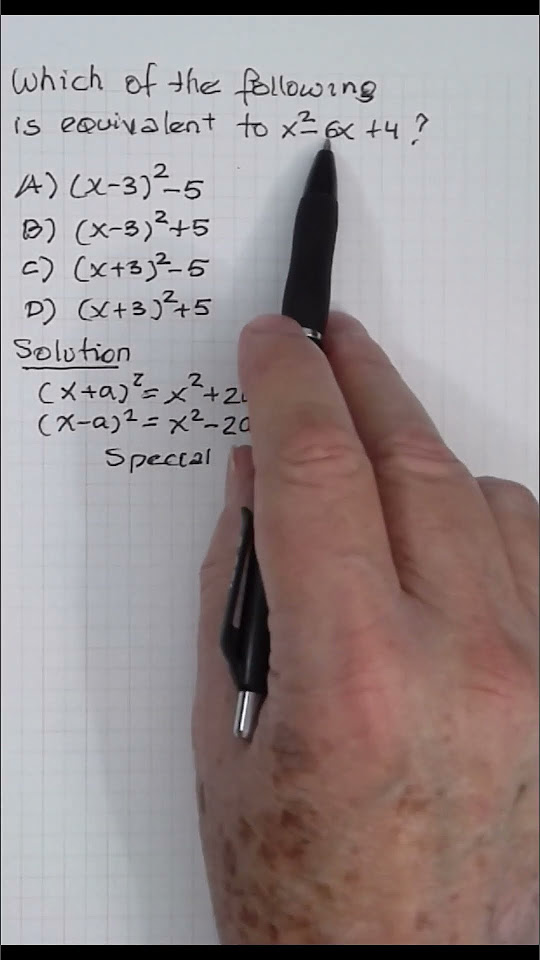 Which of the following
is equivalent to x²-6x+4?
A) (x-3)²-5
B) (x-3)²+5
C) (x+3)²-5
D) (x+3)²+5
Solution
(x+a)²=x²+2
(x-a)²=x²-2a
Speccal